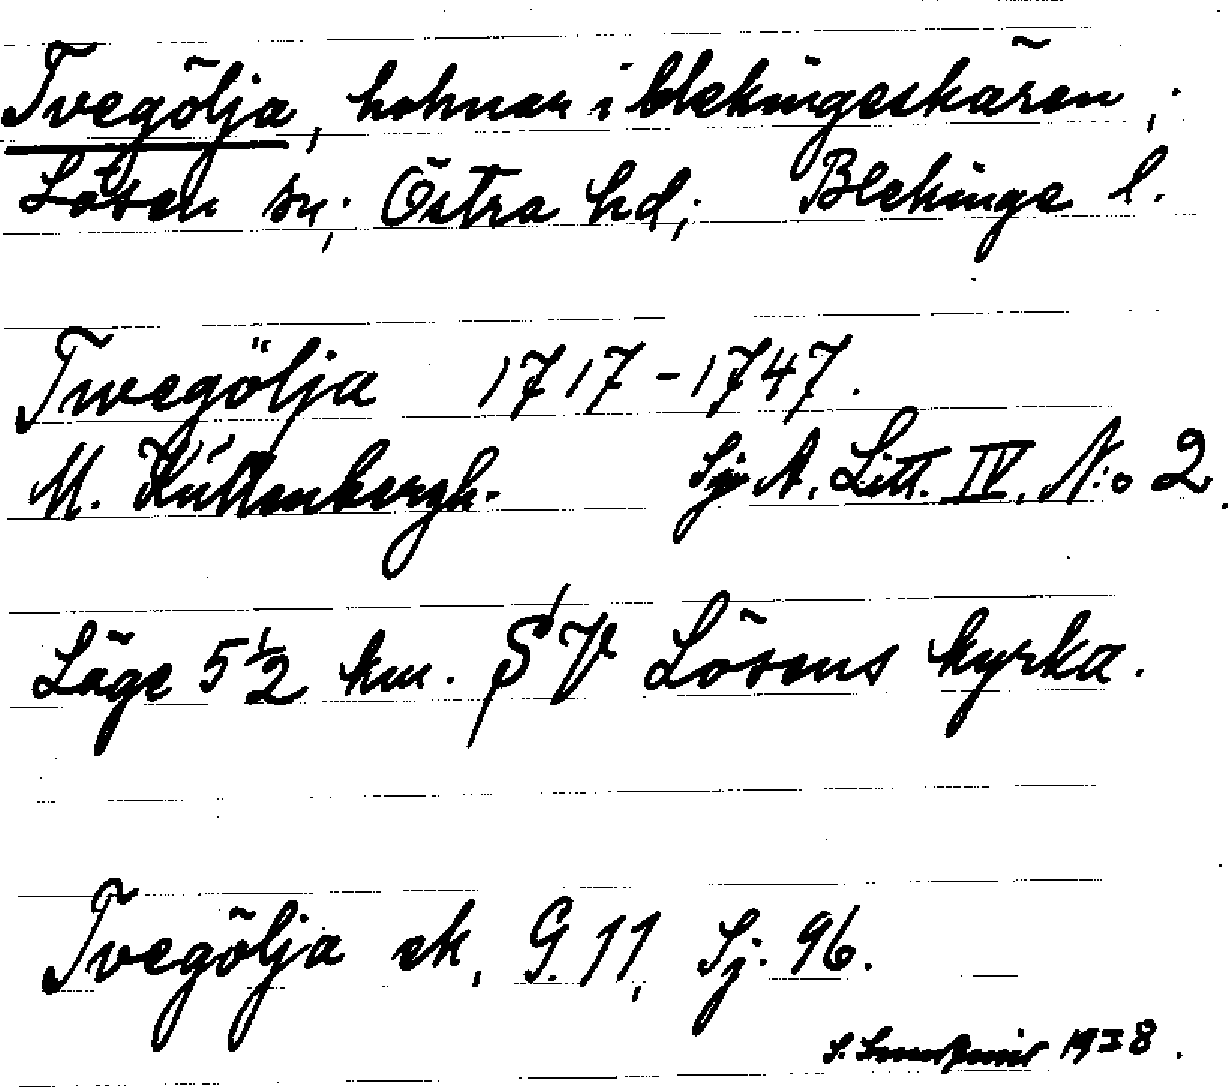 Tvegölja, holmar i Blekingeskären,;
Lösen sn; Östra hd; Blekinge l.
Twegölja 1717-1747.
M. Hüttenbergh. Sjö A. Litt. IV. N:o 2.
Läge 5 1/2 km. SV Lösens kyrka.
Tvegölja ek, G. 11, Sj. 96.
1938.